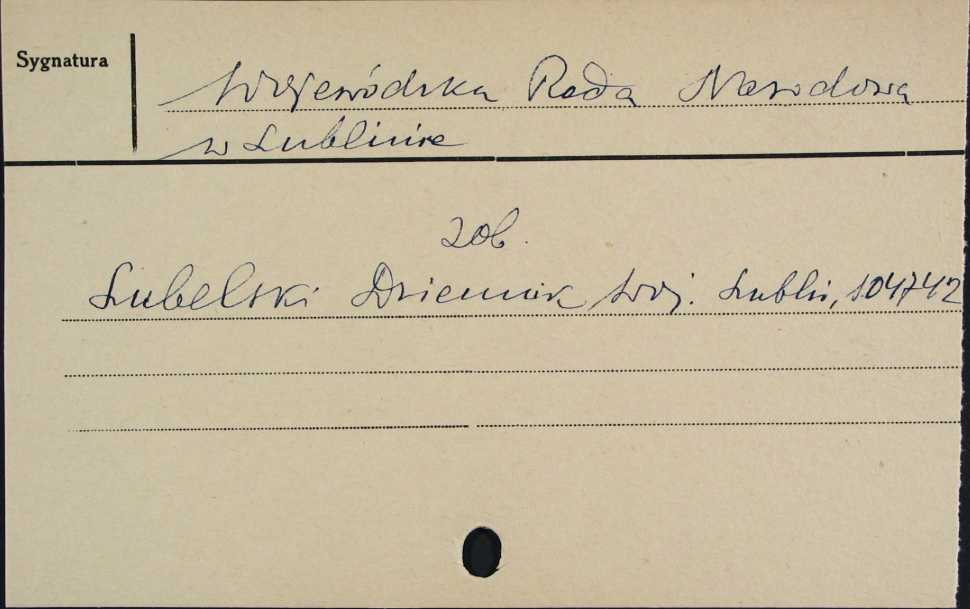 Sygnatura
Wojewódzka Rada Narodowa
w Lublinie
zob.
Lubelski Dziennik Woj. Lublin, 104742